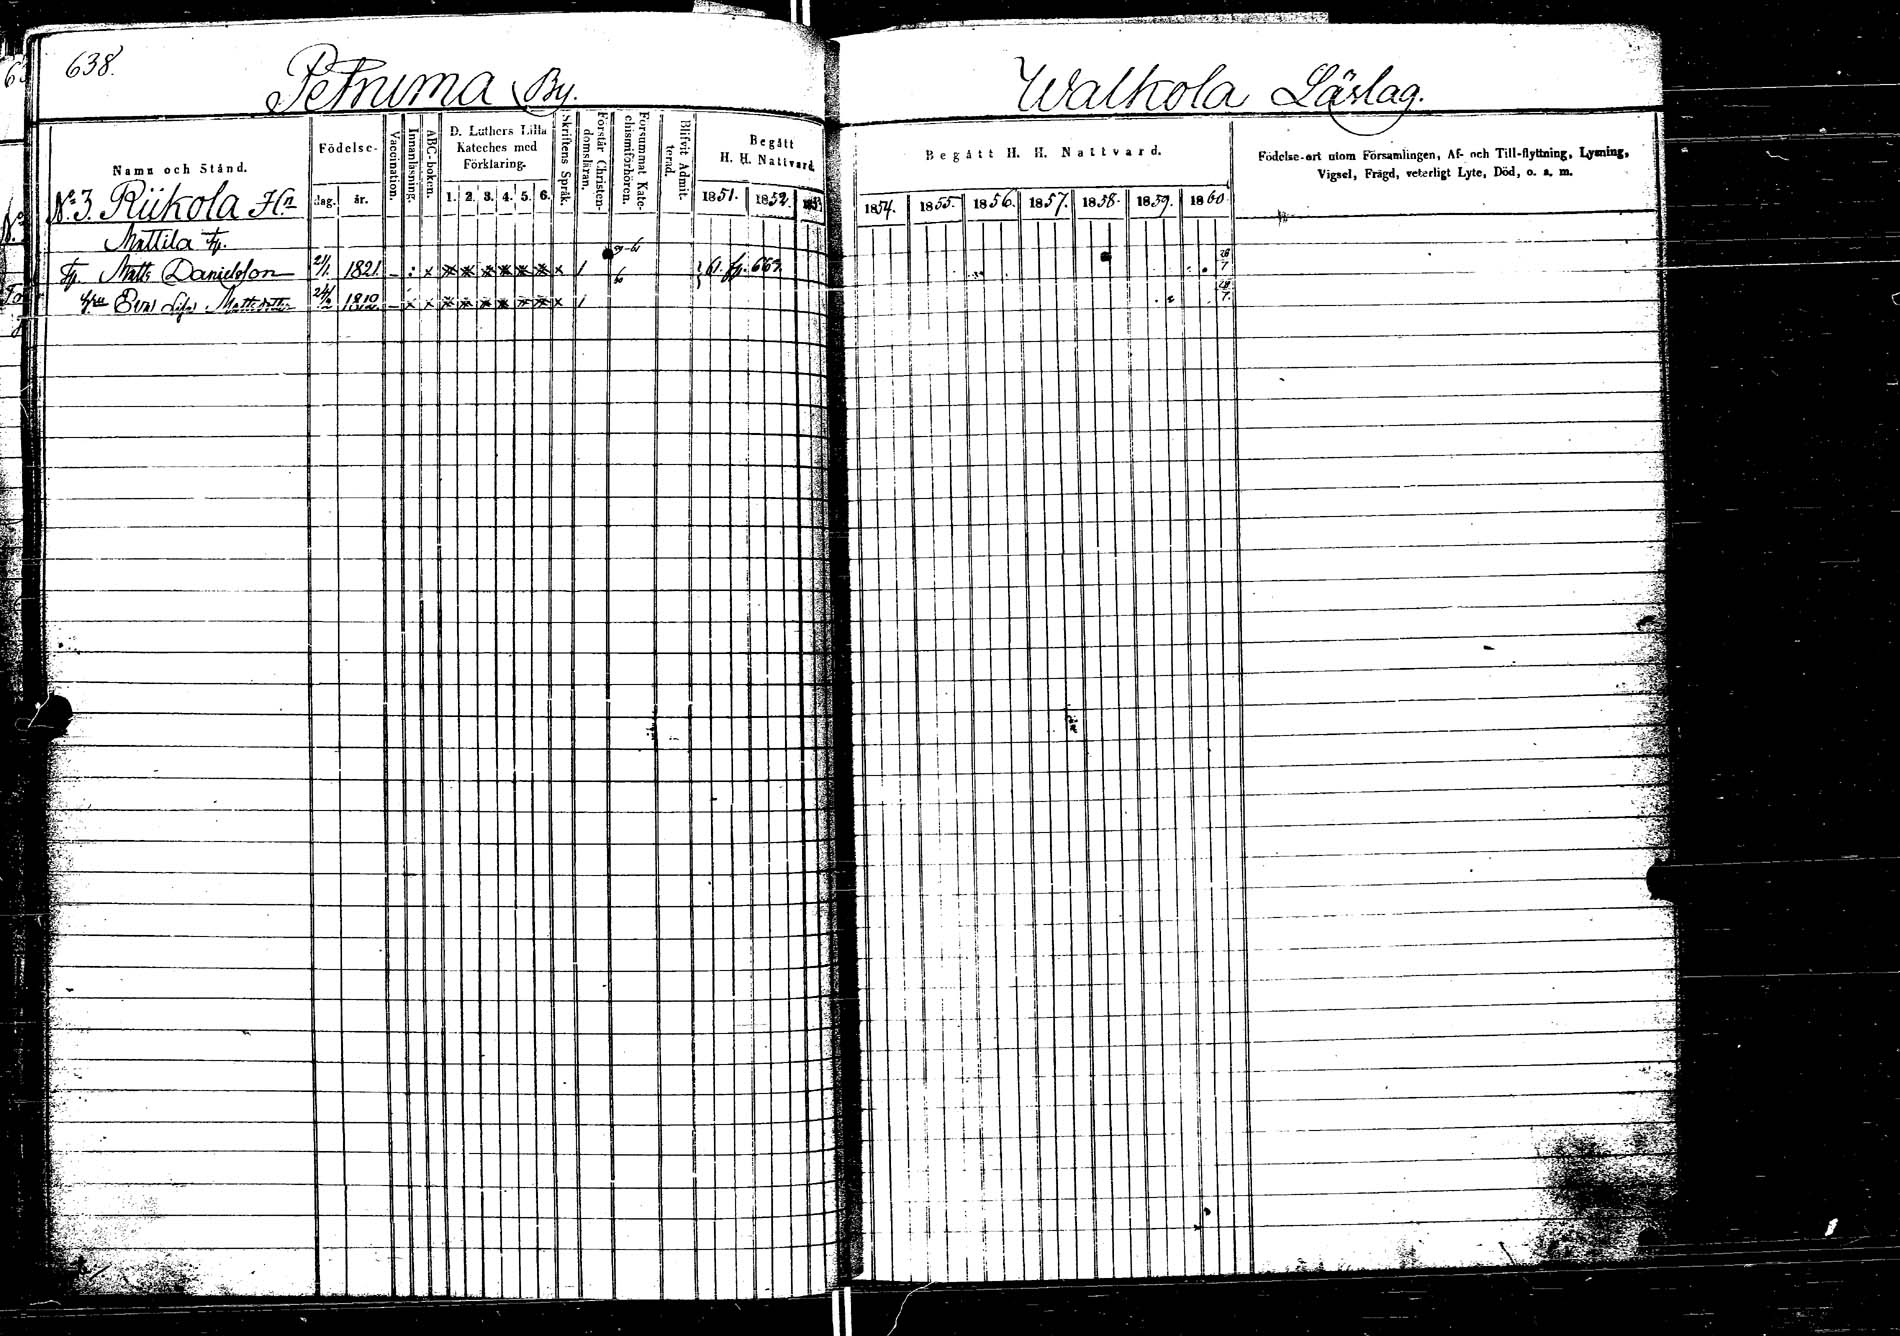 638.
Petruma By.
Walkola Läslag.
Namn och Stånd.
Födelse-
dag. år.
Vaccination.
Innanläsning.
ABC-boken.
D. Luthers Lilla
Kateches med
Förklaring.
1. 2. 3. 4. 5. 6.
Skriftens Språk.
Förstår Christen-
domsläran.
Försummat Kate-
chismiförhören.
Blifvit Admit-
terad.
Begått
H. H. Nattvard.
1851. 1852. 1853
Begått H. H. Nattvard.
1854. 1855. 1856. 1857. 1858. 1859. 1860
Födelse-ort utom Församlingen, Af- och Till-flyttning, Lysning,
Vigsel, Frägd, veterligt Lyte, Död, o. s. m.
No 3. Riikola Hn
Mattila Tp.
Tp. Matts Danielsson 21/1. 1821. – : x x x x x x x x 1 61. fp. 663. 28/7
Eva Lisa Mattsdotter 24/12 1810 – x x x x x x x x x 1 60 28/7.